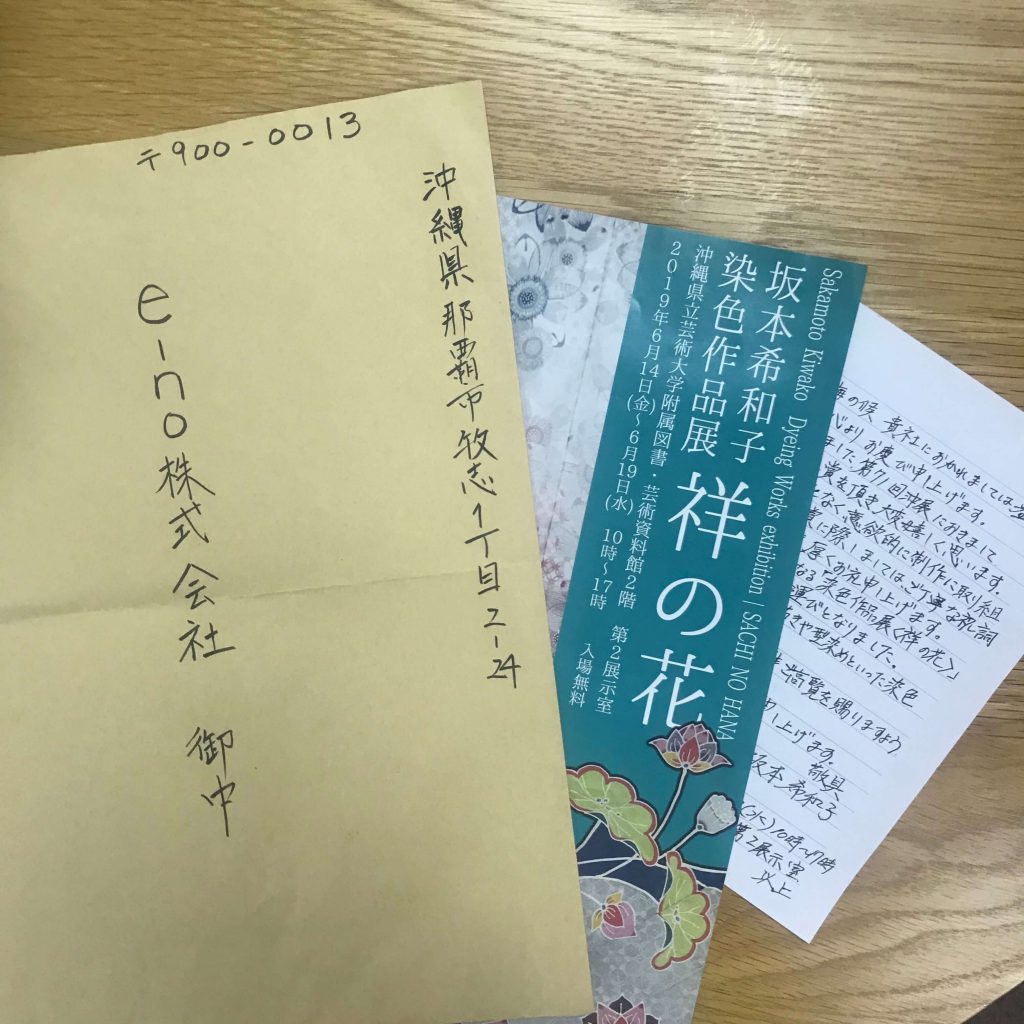 〒900-0013
沖縄県那覇市牧志1丁目2-24
e-no株式会社 御中
Sakamoto Kiwako Dyeing Works exhibition | SACHI NO HANA
坂本希和子
染色作品展
祥の花
沖縄県立芸術大学附属図書・芸術資料館2階 第2展示室
2019年6月14日(金)～6月19日(水) 10時～17時 入場無料
の候 貴社におかれましては
お慶び申し上げます。
ました第71回沖展におきまして
賞を頂き大変嬉しく思います。
となく意欲的に制作に取り組
に際しましては、ご丁寧な祝詞
厚くお礼申し上げます。
なる染色作品展〈祥の花〉
運びとなりました。
や型染めといった染色
高覧を賜りますよう
し上げます。
敬具
坂本希和子
(水)10時～17時
第2展示室
以上